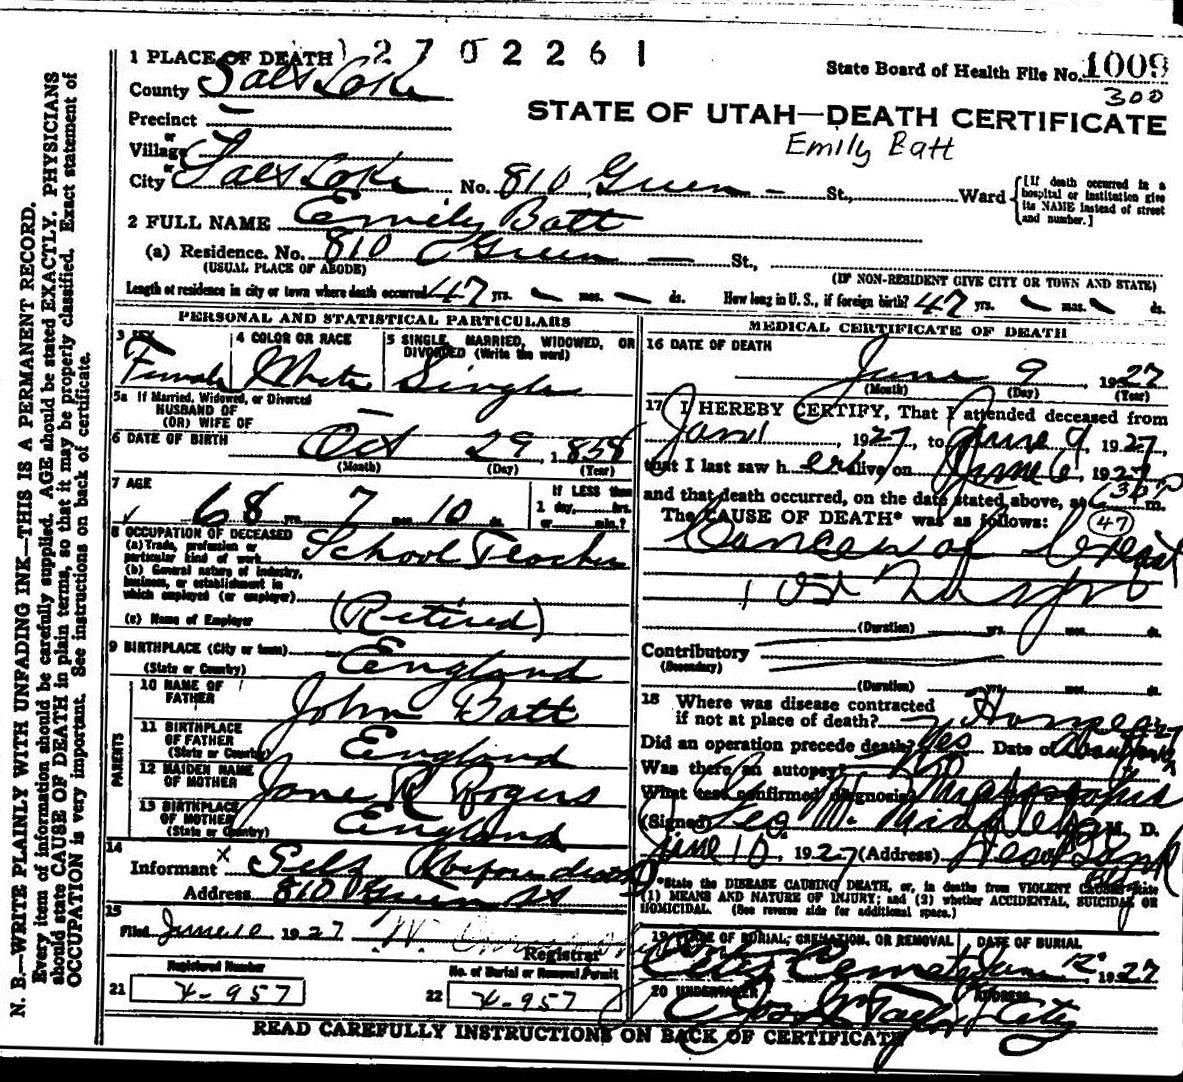 1 2 7 0 2 2 6 1
1 PLACE OF DEATH
State Board of Health File No. 1009
300
County Salt Lake
STATE OF UTAH—DEATH CERTIFICATE
Emily Batt
Precinct —
or
Village
or
City Salt Lake No. 810 Green — St., Ward
[If death occurred in a hospital or institution give its NAME instead of street and number.]
2 FULL NAME Emily Batt
(a) Residence. No. 810 Green — St.,
(USUAL PLACE OF ABODE)
(IF NON-RESIDENT GIVE CITY OR TOWN AND STATE)
Length of residence in city or town where death occurred 47 yrs. — mos. — ds.
How long in U. S., if foreign birth? 47 yrs. — mos. — ds.
PERSONAL AND STATISTICAL PARTICULARS
3 SEX
Female
4 COLOR OR RACE
White
5 SINGLE, MARRIED, WIDOWED, OR DIVORCED (Write the word)
Single
5a If Married, Widowed, or Divorced
HUSBAND OF
(OR) WIFE OF —
6 DATE OF BIRTH Oct 29, 1858
(Month) (Day) (Year)
7 AGE
68 yrs. 7 mos. 10 ds.
If LESS than
1 day, hrs.
or min.?
8 OCCUPATION OF DECEASED
(a) Trade, profession or
particular kind of work School Teacher
(b) General nature of industry,
business, or establishment in
which employed (or employer)
(c) Name of Employer (Retired)
9 BIRTHPLACE (City or town)
(State or Country) England
PARENTS
10 NAME OF
FATHER John Batt
11 BIRTHPLACE
OF FATHER
(State or Country) England
12 MAIDEN NAME
OF MOTHER Jane R Rogers
13 BIRTHPLACE
OF MOTHER
(State or Country) England
14
Informant x Self before death
Address 810 Green St
15
Filed June 10 1927
Registrar
Registered Number
21 X-957
No. of Burial or Removal Permit
22 X-957
MEDICAL CERTIFICATE OF DEATH
16 DATE OF DEATH
June 9, 1927
(Month) (Day) (Year)
17 I HEREBY CERTIFY, That I attended deceased from
Jan 1, 1927, to June 9, 1927,
that I last saw her alive on June 6, 1927
and that death occurred, on the date stated above, at 6 30 P m.
The CAUSE OF DEATH* was as follows: 47
Cancer of breast
(Duration) yrs. mos. ds.
Contributory
(Secondary)
(Duration) yrs. mos. ds.
18 Where was disease contracted
if not at place of death?
Did an operation precede death? Yes Date of
Was there an autopsy? No
What test confirmed diagnosis?
(Signed) M. D.
June 10, 1927 (Address)
*State the DISEASE CAUSING DEATH, or, in deaths from VIOLENT CAUSES state
(1) MEANS AND NATURE OF INJURY; and (2) whether ACCIDENTAL, SUICIDAL OR
HOMICIDAL. (See reverse side for additional space.)
19 PLACE OF BURIAL, CREMATION, OR REMOVAL
City Cemetery
DATE OF BURIAL
June 12 1927
20 UNDERTAKER
Jos Wm Taylor
ADDRESS
City
READ CAREFULLY INSTRUCTIONS ON BACK OF CERTIFICATE
N. B.—WRITE PLAINLY WITH UNFADING INK—THIS IS A PERMANENT RECORD.
Every item of information should be carefully supplied. AGE should be stated EXACTLY. PHYSICIANS
should state CAUSE OF DEATH in plain terms, so that it may be properly classified. Exact statement of
OCCUPATION is very important. See instructions on back of certificate.